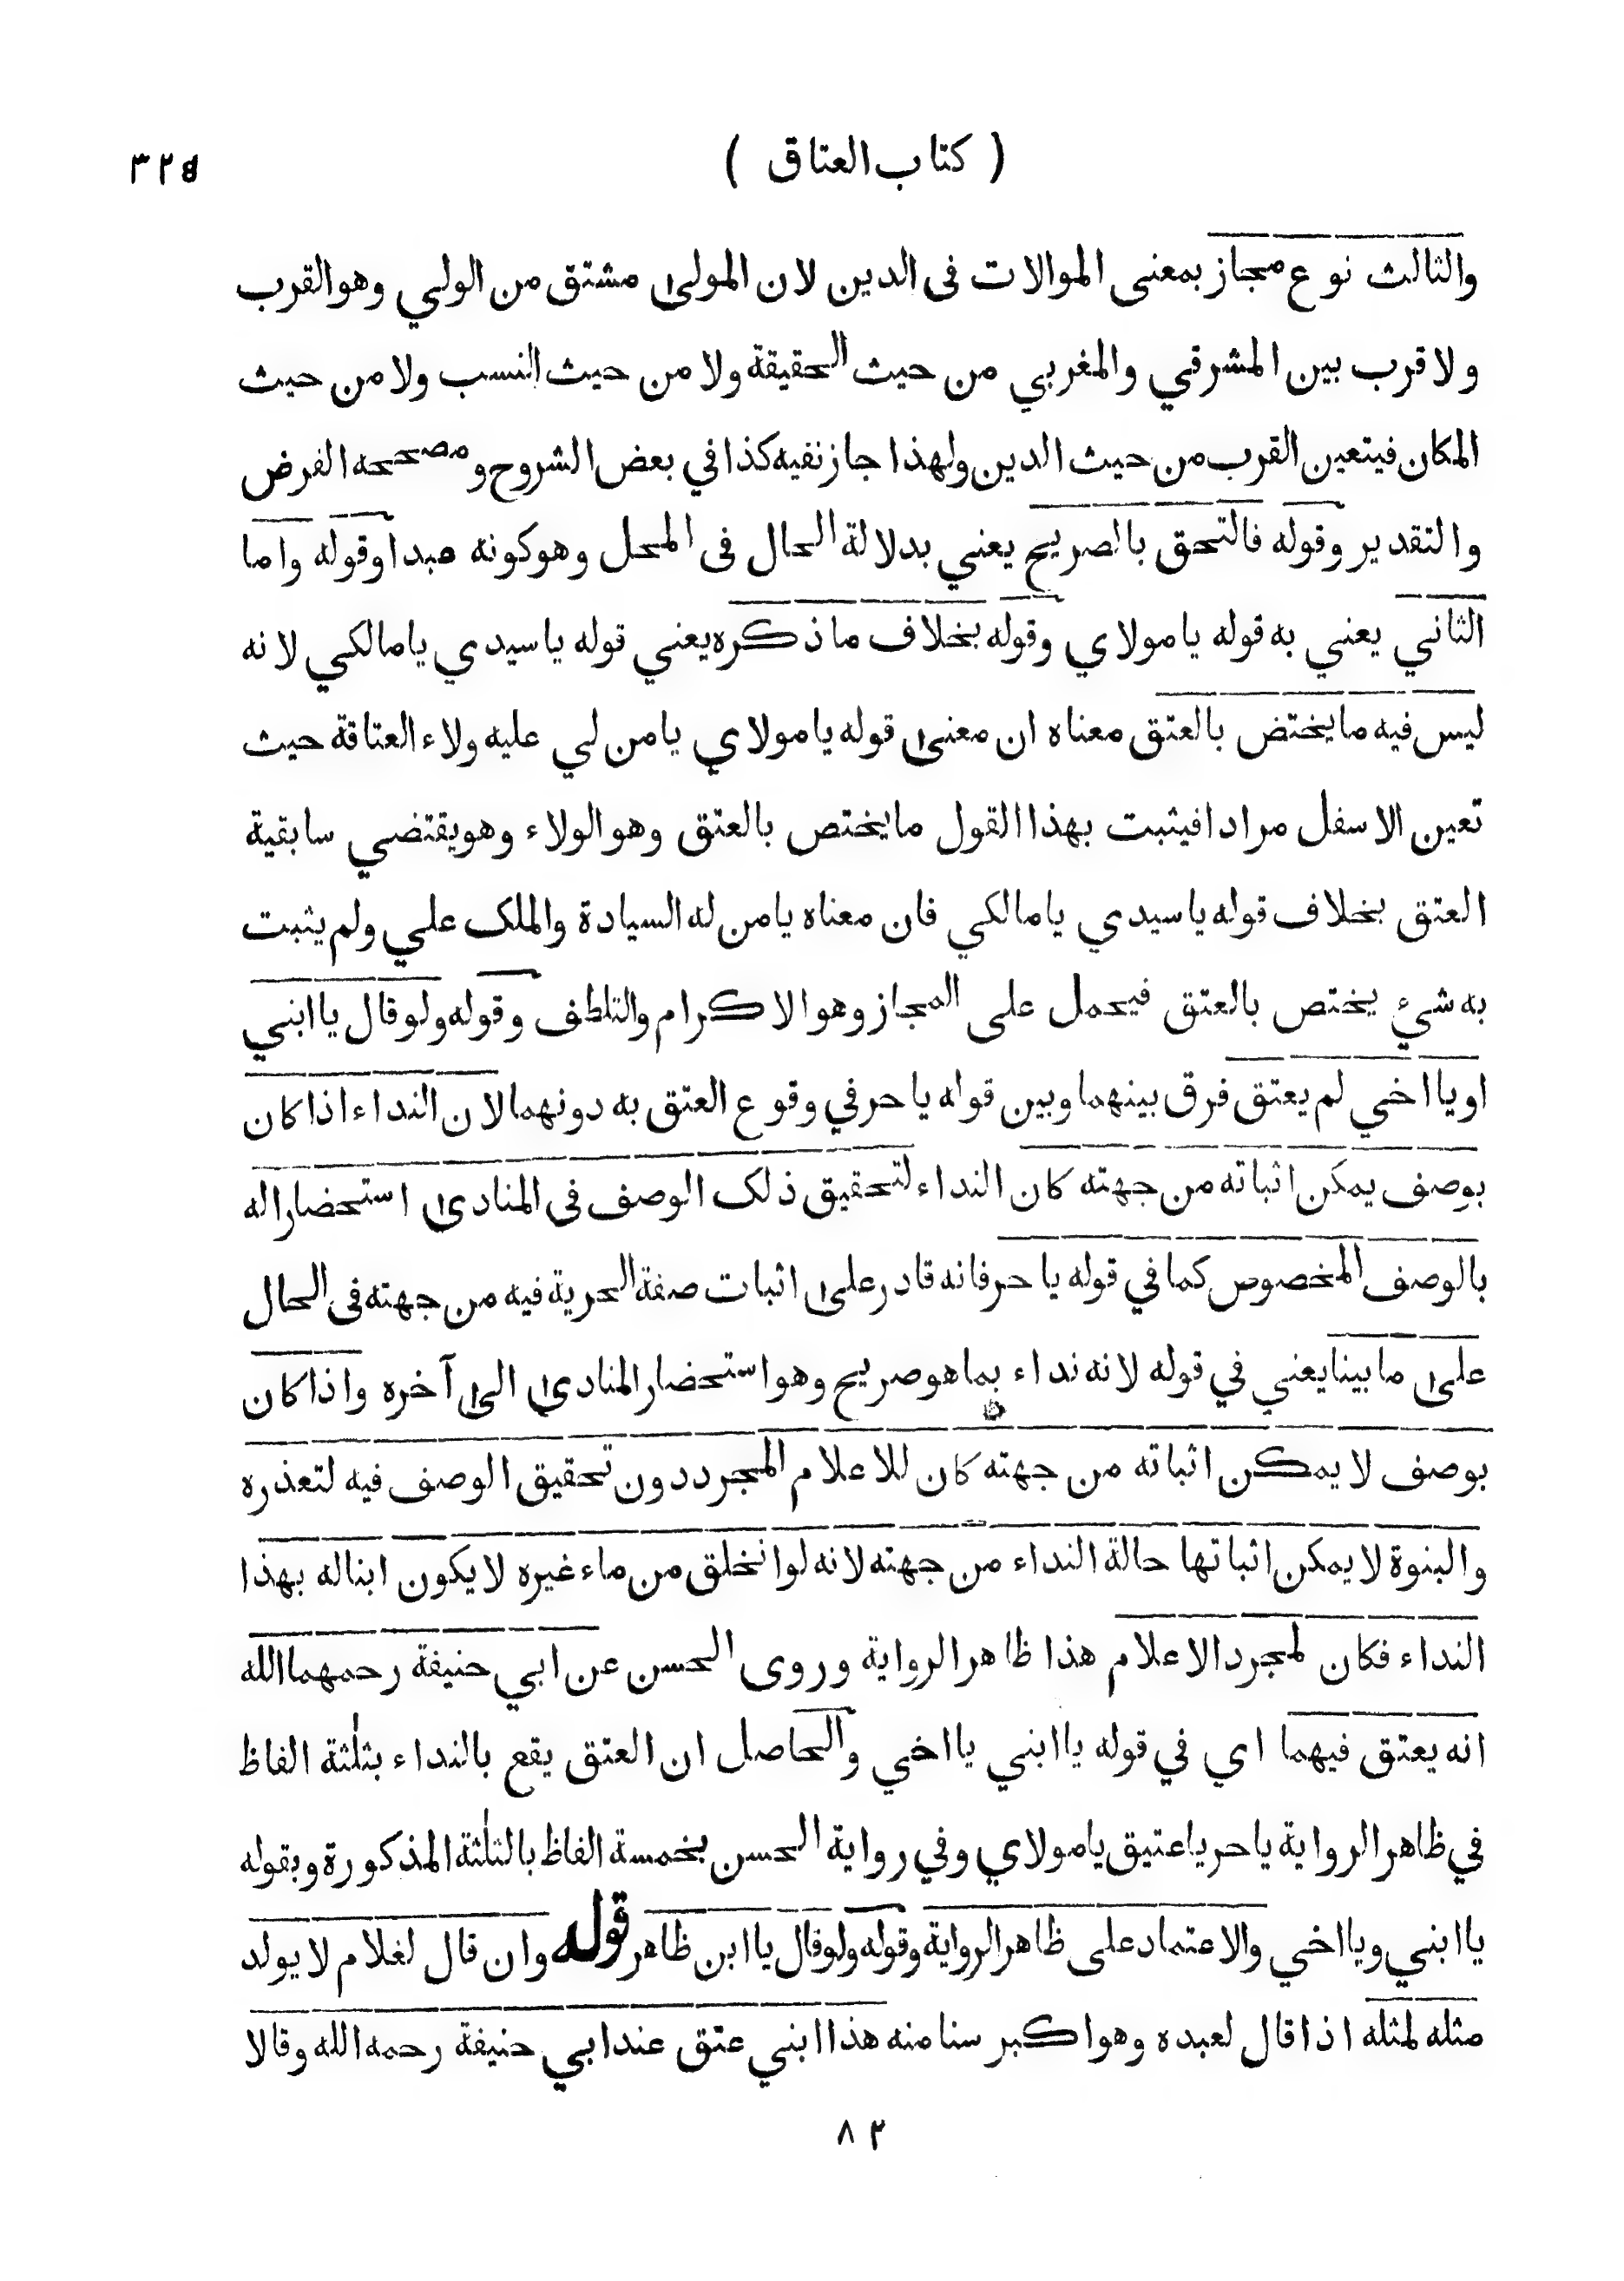 ( كتاب العتاق ) ٣٢٥
والثالث نوع مجاز بمعنى الموالات فى الدين لان المولىٰ مشتق من الولي وهو القرب
ولا قرب بين المشرقي والمغربي من حيث الحقيقة ولا من حيث النسب ولا من حيث
المكان فيتعين القرب من حيث الدين ولهذا جاز نفيه كذا في بعض الشروح ومصححه الفرض
والتقدير وقوله فالتحق بالصريح يعني بدلالة الحال فى المحل وهو كونه عبدا وقوله واما
الثاني يعني به قوله يا مولاي وقوله بخلاف ما ذكره يعني قوله يا سيدي يا مالكي لانه
ليس فيه ما يختض بالعتق معناه ان معنىٰ قوله يا مولاي يا من لي عليه ولاء العتاقة حيث
تعين الاسفل مرادا فيثبت بهذا القول ما يختص بالعتق وهو الولاء وهو يقتضي سابقية
العتق بخلاف قوله يا سيدي يا مالكي فان معناه يا من له السيادة والملك علي ولم يثبت
به شيء يختص بالعتق فيحمل على المجاز وهو الاكرام والتلطف وقوله ولو قال يا ابني
او يا اخي لم يعتق فرق بينهما وبين قوله يا حر في وقوع العتق به دونهما لان النداء اذا كان
بوصف يمكن اثباته من جهته كان النداء لتحقيق ذلك الوصف فى المنادىٰ استحضارا له
بالوصف المخصوص كما في قوله يا حر فانه قادر علىٰ اثبات صفة الحرية فيه من جهته فى الحال
علىٰ ما بينا يعني في قوله لانه نداء بما هو صريح وهو استحضار المنادىٰ الىٰ آخره واذا كان
بوصف لا يمكن اثباته من جهته كان للاعلام المجرد دون تحقيق الوصف فيه لتعذره
والبنوة لا يمكن اثباتها حالة النداء من جهته لانه لو انخلق من ماء غيره لا يكون ابنا له بهذا
النداء فكان لمجرد الاعلام هذا ظاهر الرواية وروى الحسن عن ابي حنيفة رحمهما الله
انه يعتق فيهما اي في قوله يا ابني يا اخي والحاصل ان العتق يقع بالنداء بثلٰثة الفاظ
في ظاهر الرواية يا حر يا عتيق يا مولاي وفي رواية الحسن بخمسة الفاظ بالثلٰثة المذكورة وبقوله
يا ابني ويا اخي والاعتماد على ظاهر الرواية وقوله ولو قال يا ابن ظاهر قوله وان قال لغلام لا يولد
مثله لمثله اذا قال لعبده وهو اكبر سنا منه هذا ابني عتق عند ابي حنيفة رحمه الله وقالا
٨٢